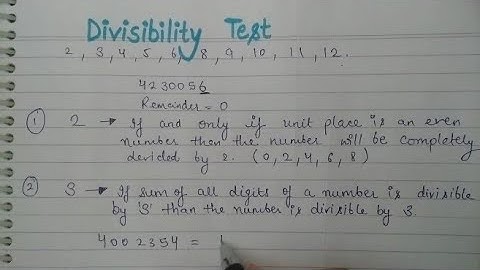 Divisibility Test
2, 3, 4, 5, 6, 8, 9, 10, 11, 12.
4230056
Remainder = 0
① 2 → If and only if unit place is an even
number then the number will be completely
derided by 2. (0, 2, 4, 6, 8)
② 3 → If sum of all digits of a number is divisible
by '3' than the number is divisible by 3.
4002354 =